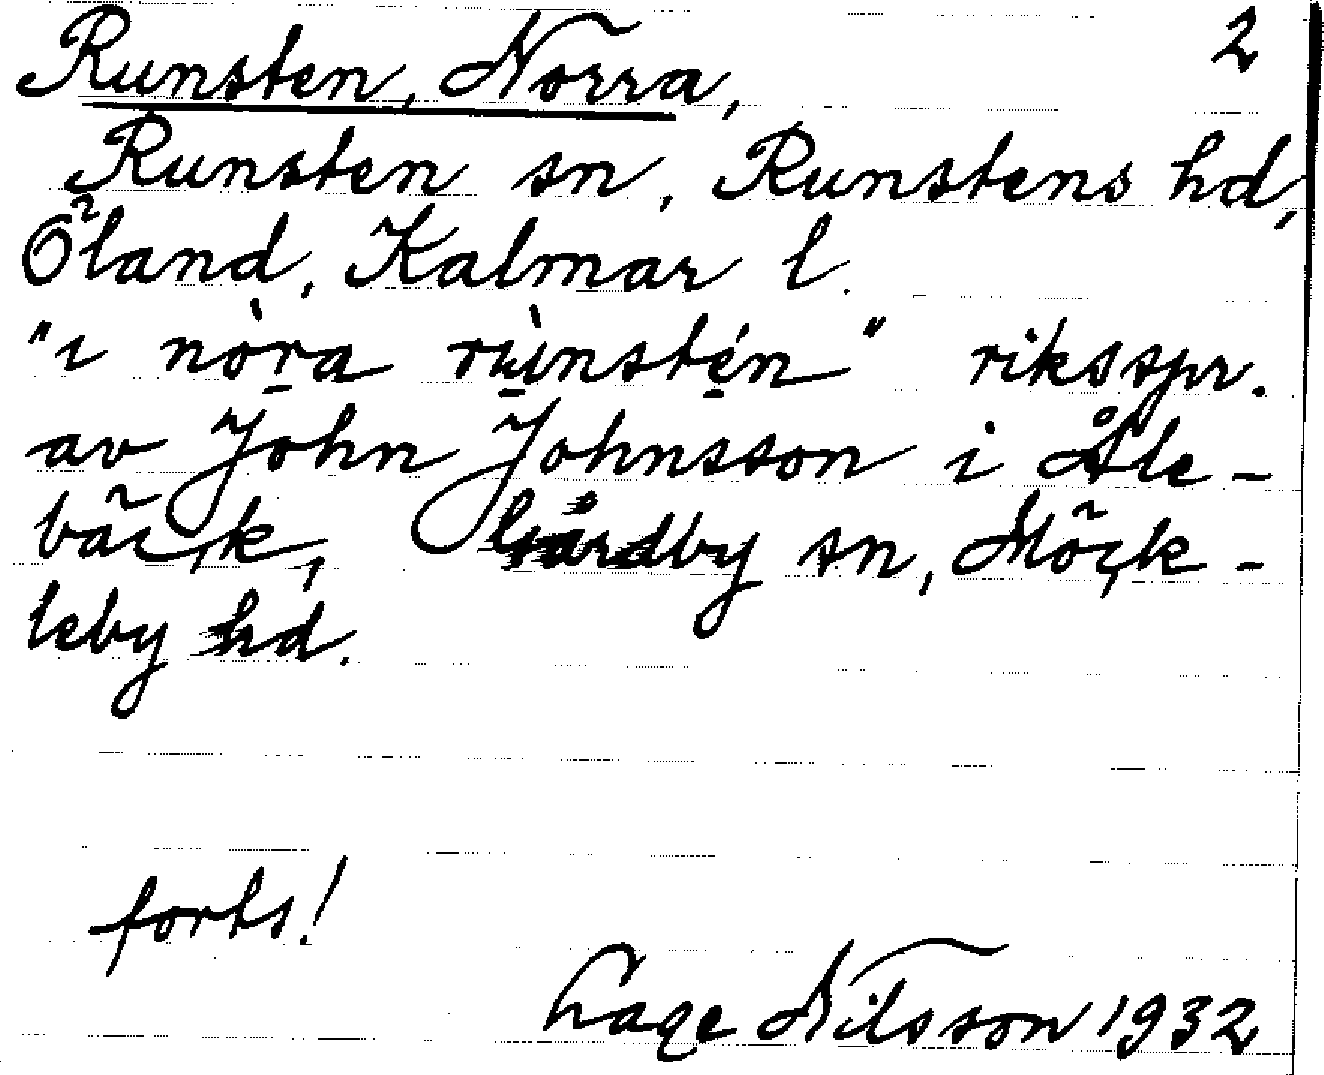 Runsten, Norra, 2
Runsten sn, Runstens hd,
Öland, Kalmar l.
"ı nòra rùnstén" riksspr.
av John Johnsson i Åle-
bäck, Gårdby sn, Möck-
leby hd.
forts!
Lage Nilsson 1932